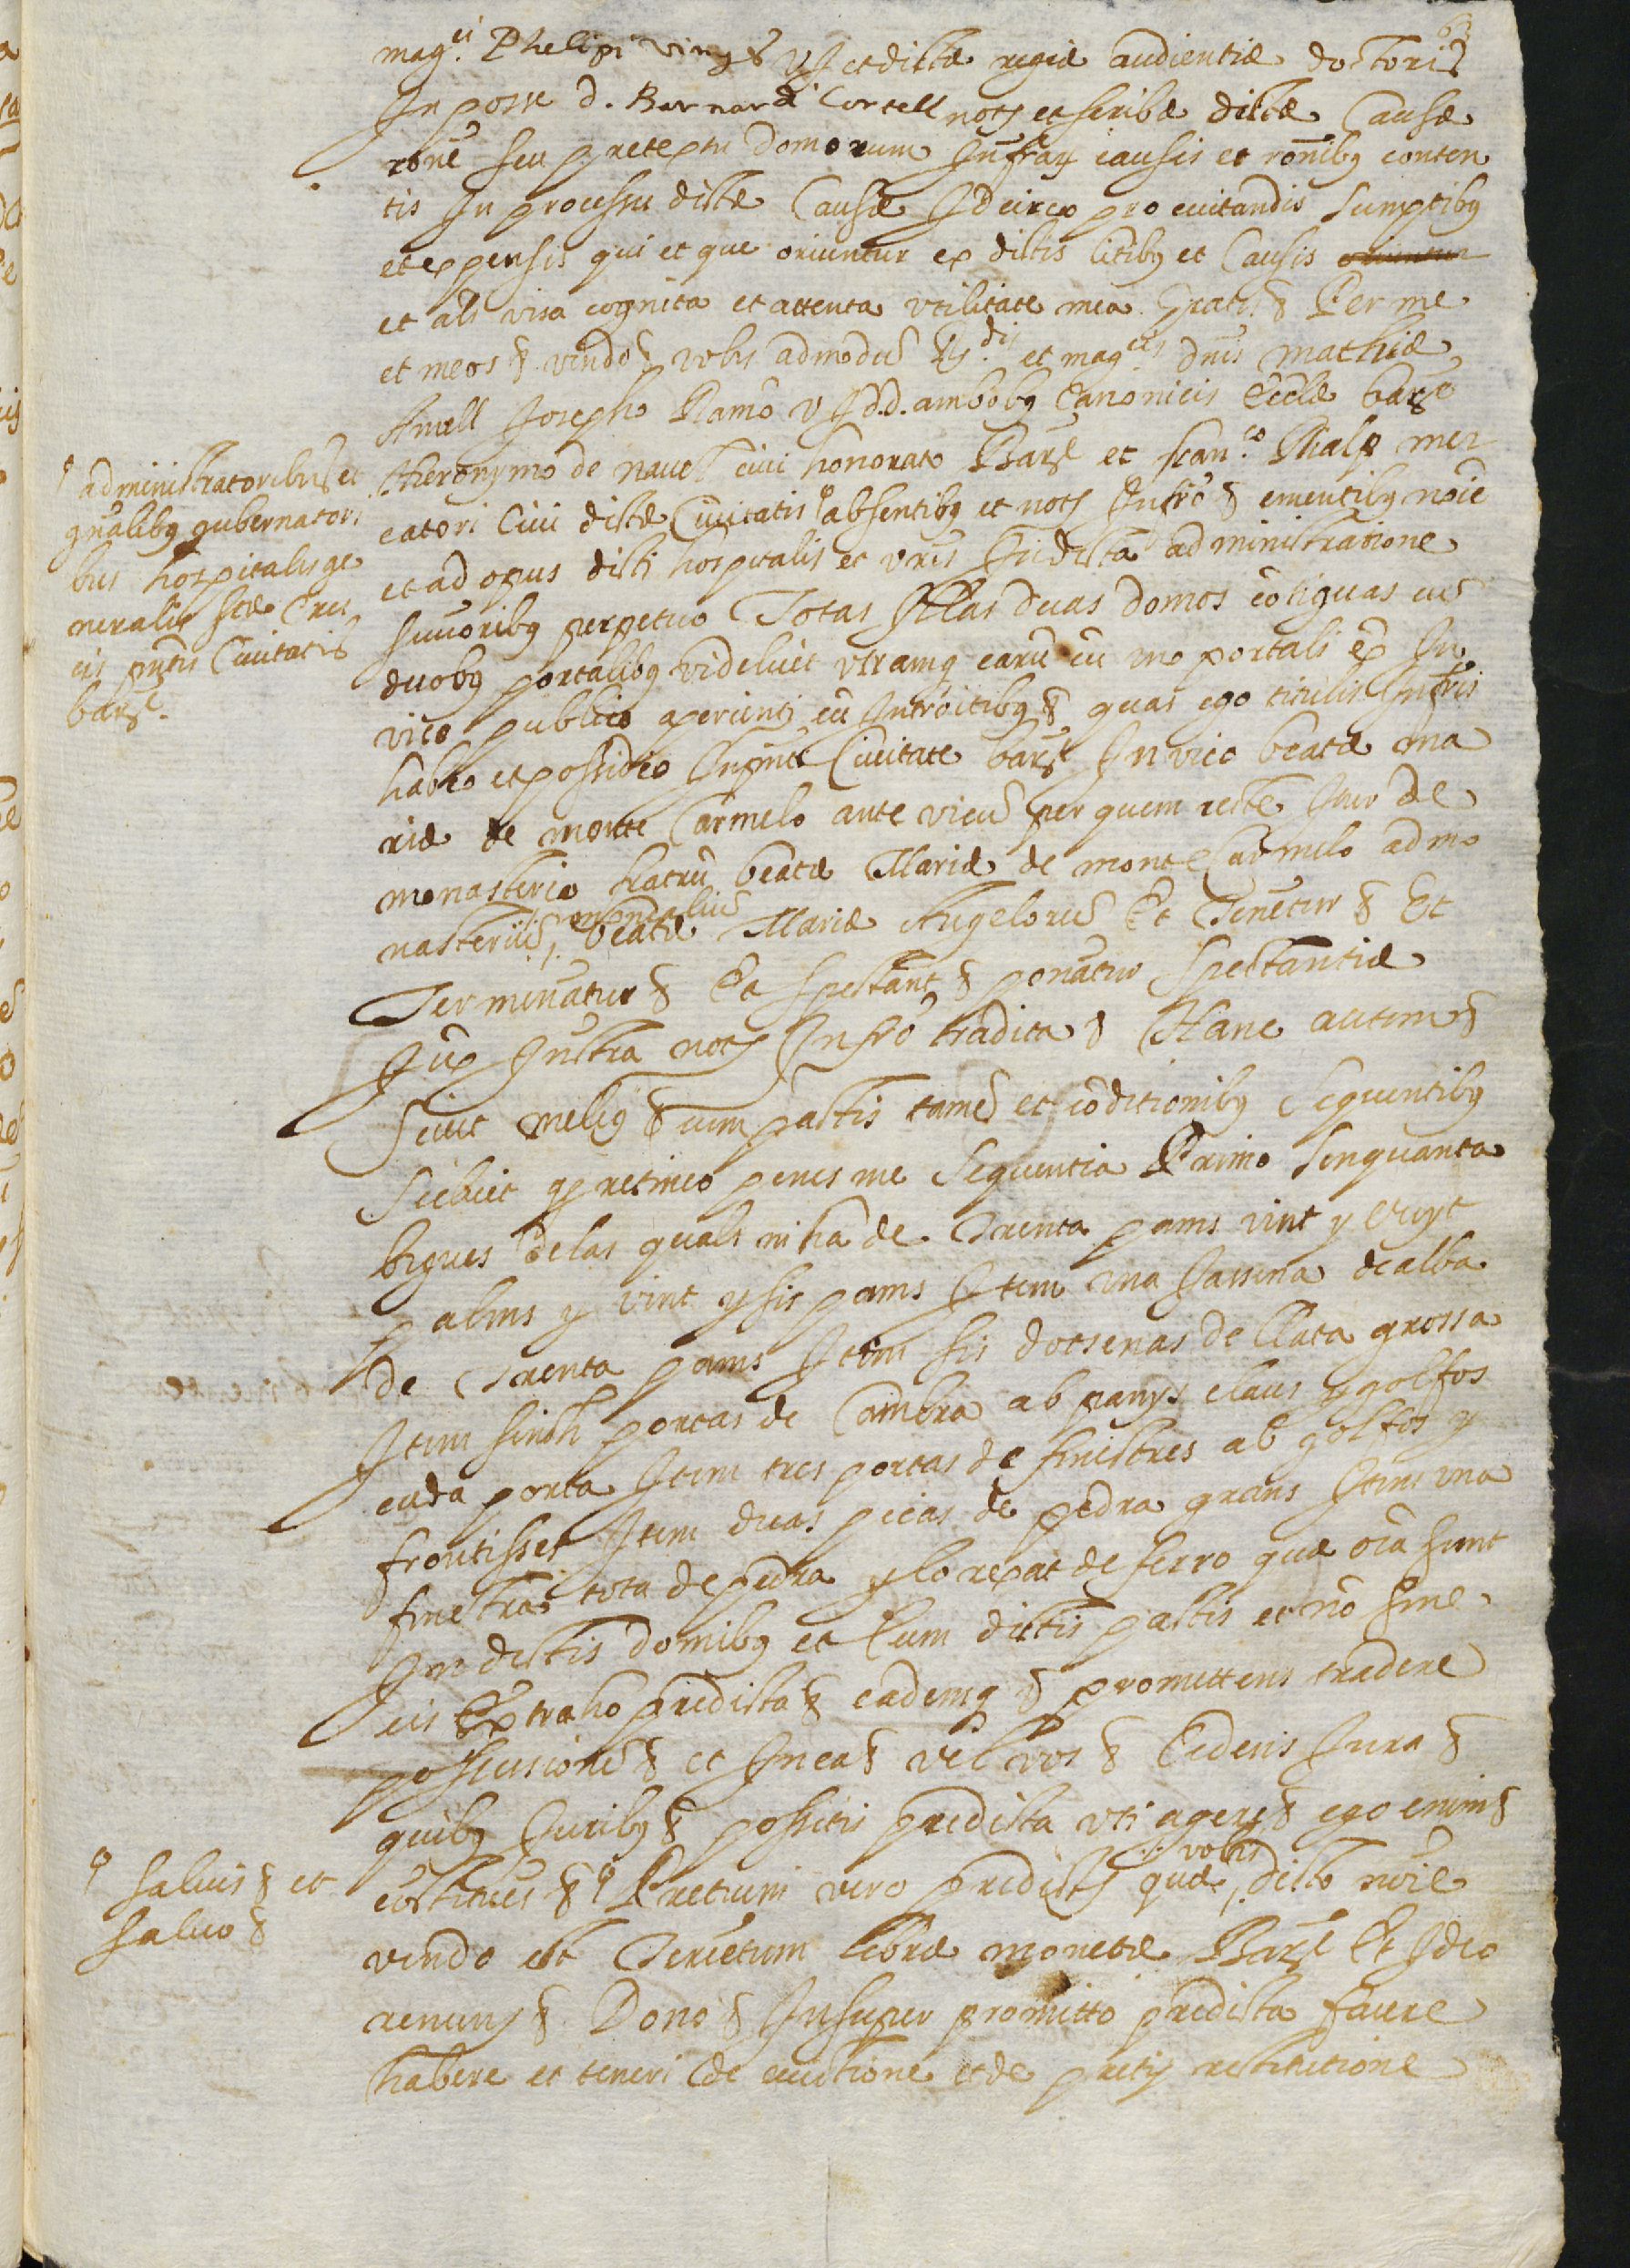 mag.ci Phelipi Vinyes VJ et dictæ regiæ audientiæ doctoris
In posse d. Bernardi Cortell notj et scribæ dictæ Causæ
rõne seu pretextu domorum Infraxj causis et rõnibq conten
tis In processu dictæ Causæ Idcirco pro evitandis sumptibq
et expensis qui et que oriuntur ex dictis litibq et Causis
et als visa cognita et attenta utilitate mea. Gratis & Per me
et meos & vendo & vobis admodũ Rdis et mag.cis dñis Mathiæ
Amell Josepho Ramõ VJdd. ambobq Canonicis Ecclæ barxe
Hieronymo de navel civi honorato Barxe et fran.co Chalp mer
catori Civi dictæ Civitatis absentibq et notj Infrõ & ementibq noie
et ad opus dicti hospitalis et vris In dicta administratione
sucoribq perpetuo Totas Illas duas domos cõtiguas cũ
duobq portalibq videlicet utramq earũ cũ uno portali ex In
vico publico aperienti cũ Introitibq & quas ego titulis Infris
habeo et possideo In pñti Civitate barxe In vico beatæ Ma
riæ de monte Carmelo ante vicũ per quem recte Itur de
monasterio fratrũ beatæ Mariæ de monte Carmelo ad mo
nasteriũ monialiũ beatæ Mariæ Angelorũ Et Tenetur & Et
Terminatur & Et spectant & ponatur spectantiæ
Jux Instra notj Infrõ tradita & Hanc autem &
Sicut meliq & cum pactis tamẽ et cõditionibq sequentibq
Scilicet q retineo penes me sequentia Primo sinquanta
bigues de las quals ni ha de Trenta pams vint y vuyt
palms y vint y sis pams Item una Jassena de alba
de Trenta pams Item sis dotsenas de llata grossa
Item sinch portas de Cambra ab panys claus y golfos
cada porta Item tres portas de finestres ab golfos y
frontisses Item duas picas de pedra grans Item una
finestra tota de pedra y lo rexat de ferro quæ oia sunt
In dictis domibq et Cum dictis pactis et nõ sine
eis Extraho predicta & eademq & promittens tradere
possessionẽ & et In ea & vel vos & Cedens Jura &
quibq Juribq & possitis predicta uti agere & ego enim &
cõstitues & Pretium vero predictj quæ vobis dicto noie
vendo est Tercentum libræ monetæ Barxe Et Ideo
renunj & Dono & Insuper promitto predicta facere
habere et teneri de evictione et de pretij restitutione
administratoribus et
gñalibq gubernatori
bus hospitalis ge
neralis stæ Cru
cis pñtis Civitatis
barxe.
salvis & et
salvo &